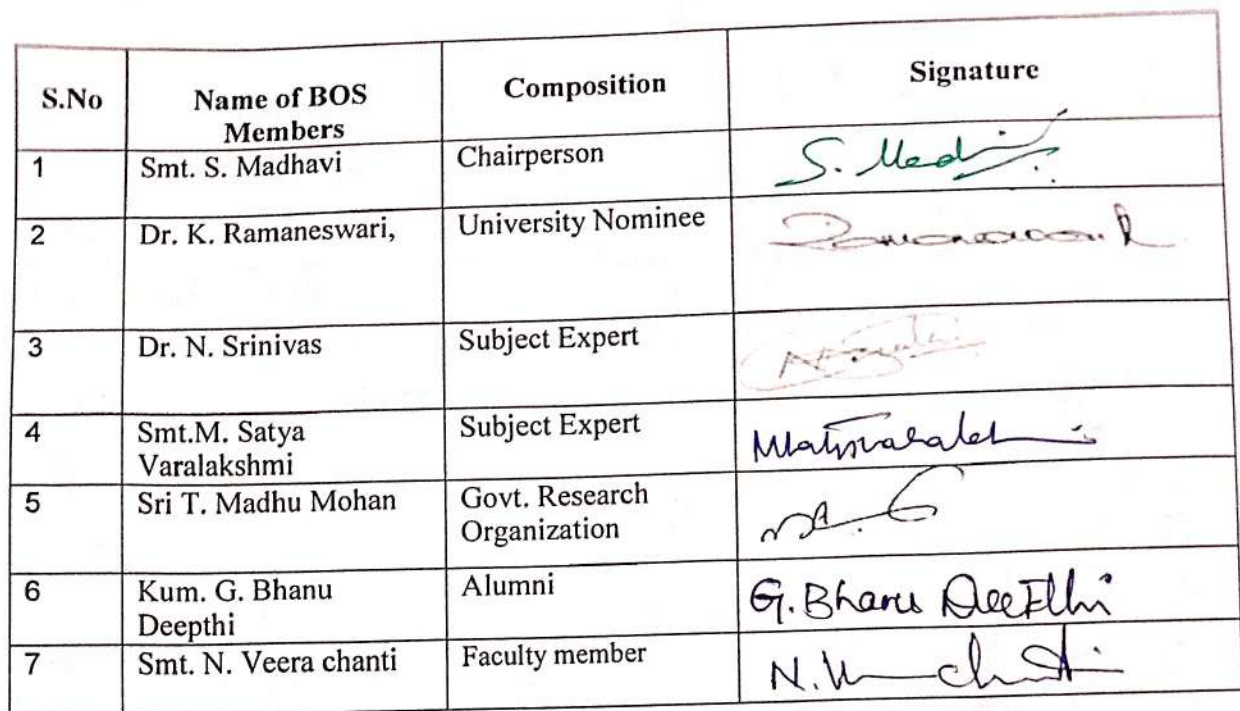 S.No Name of BOS Composition Signature
Members
1 Smt. S. Madhavi Chairperson S. Madhavi
2 Dr. K. Ramaneswari, University Nominee
3 Dr. N. Srinivas Subject Expert
4 Smt.M. Satya Subject Expert
Varalakshmi
5 Sri T. Madhu Mohan Govt. Research
Organization
6 Kum. G. Bhanu Alumni G. Bhanu Deepthi
Deepthi
7 Smt. N. Veera chanti Faculty member